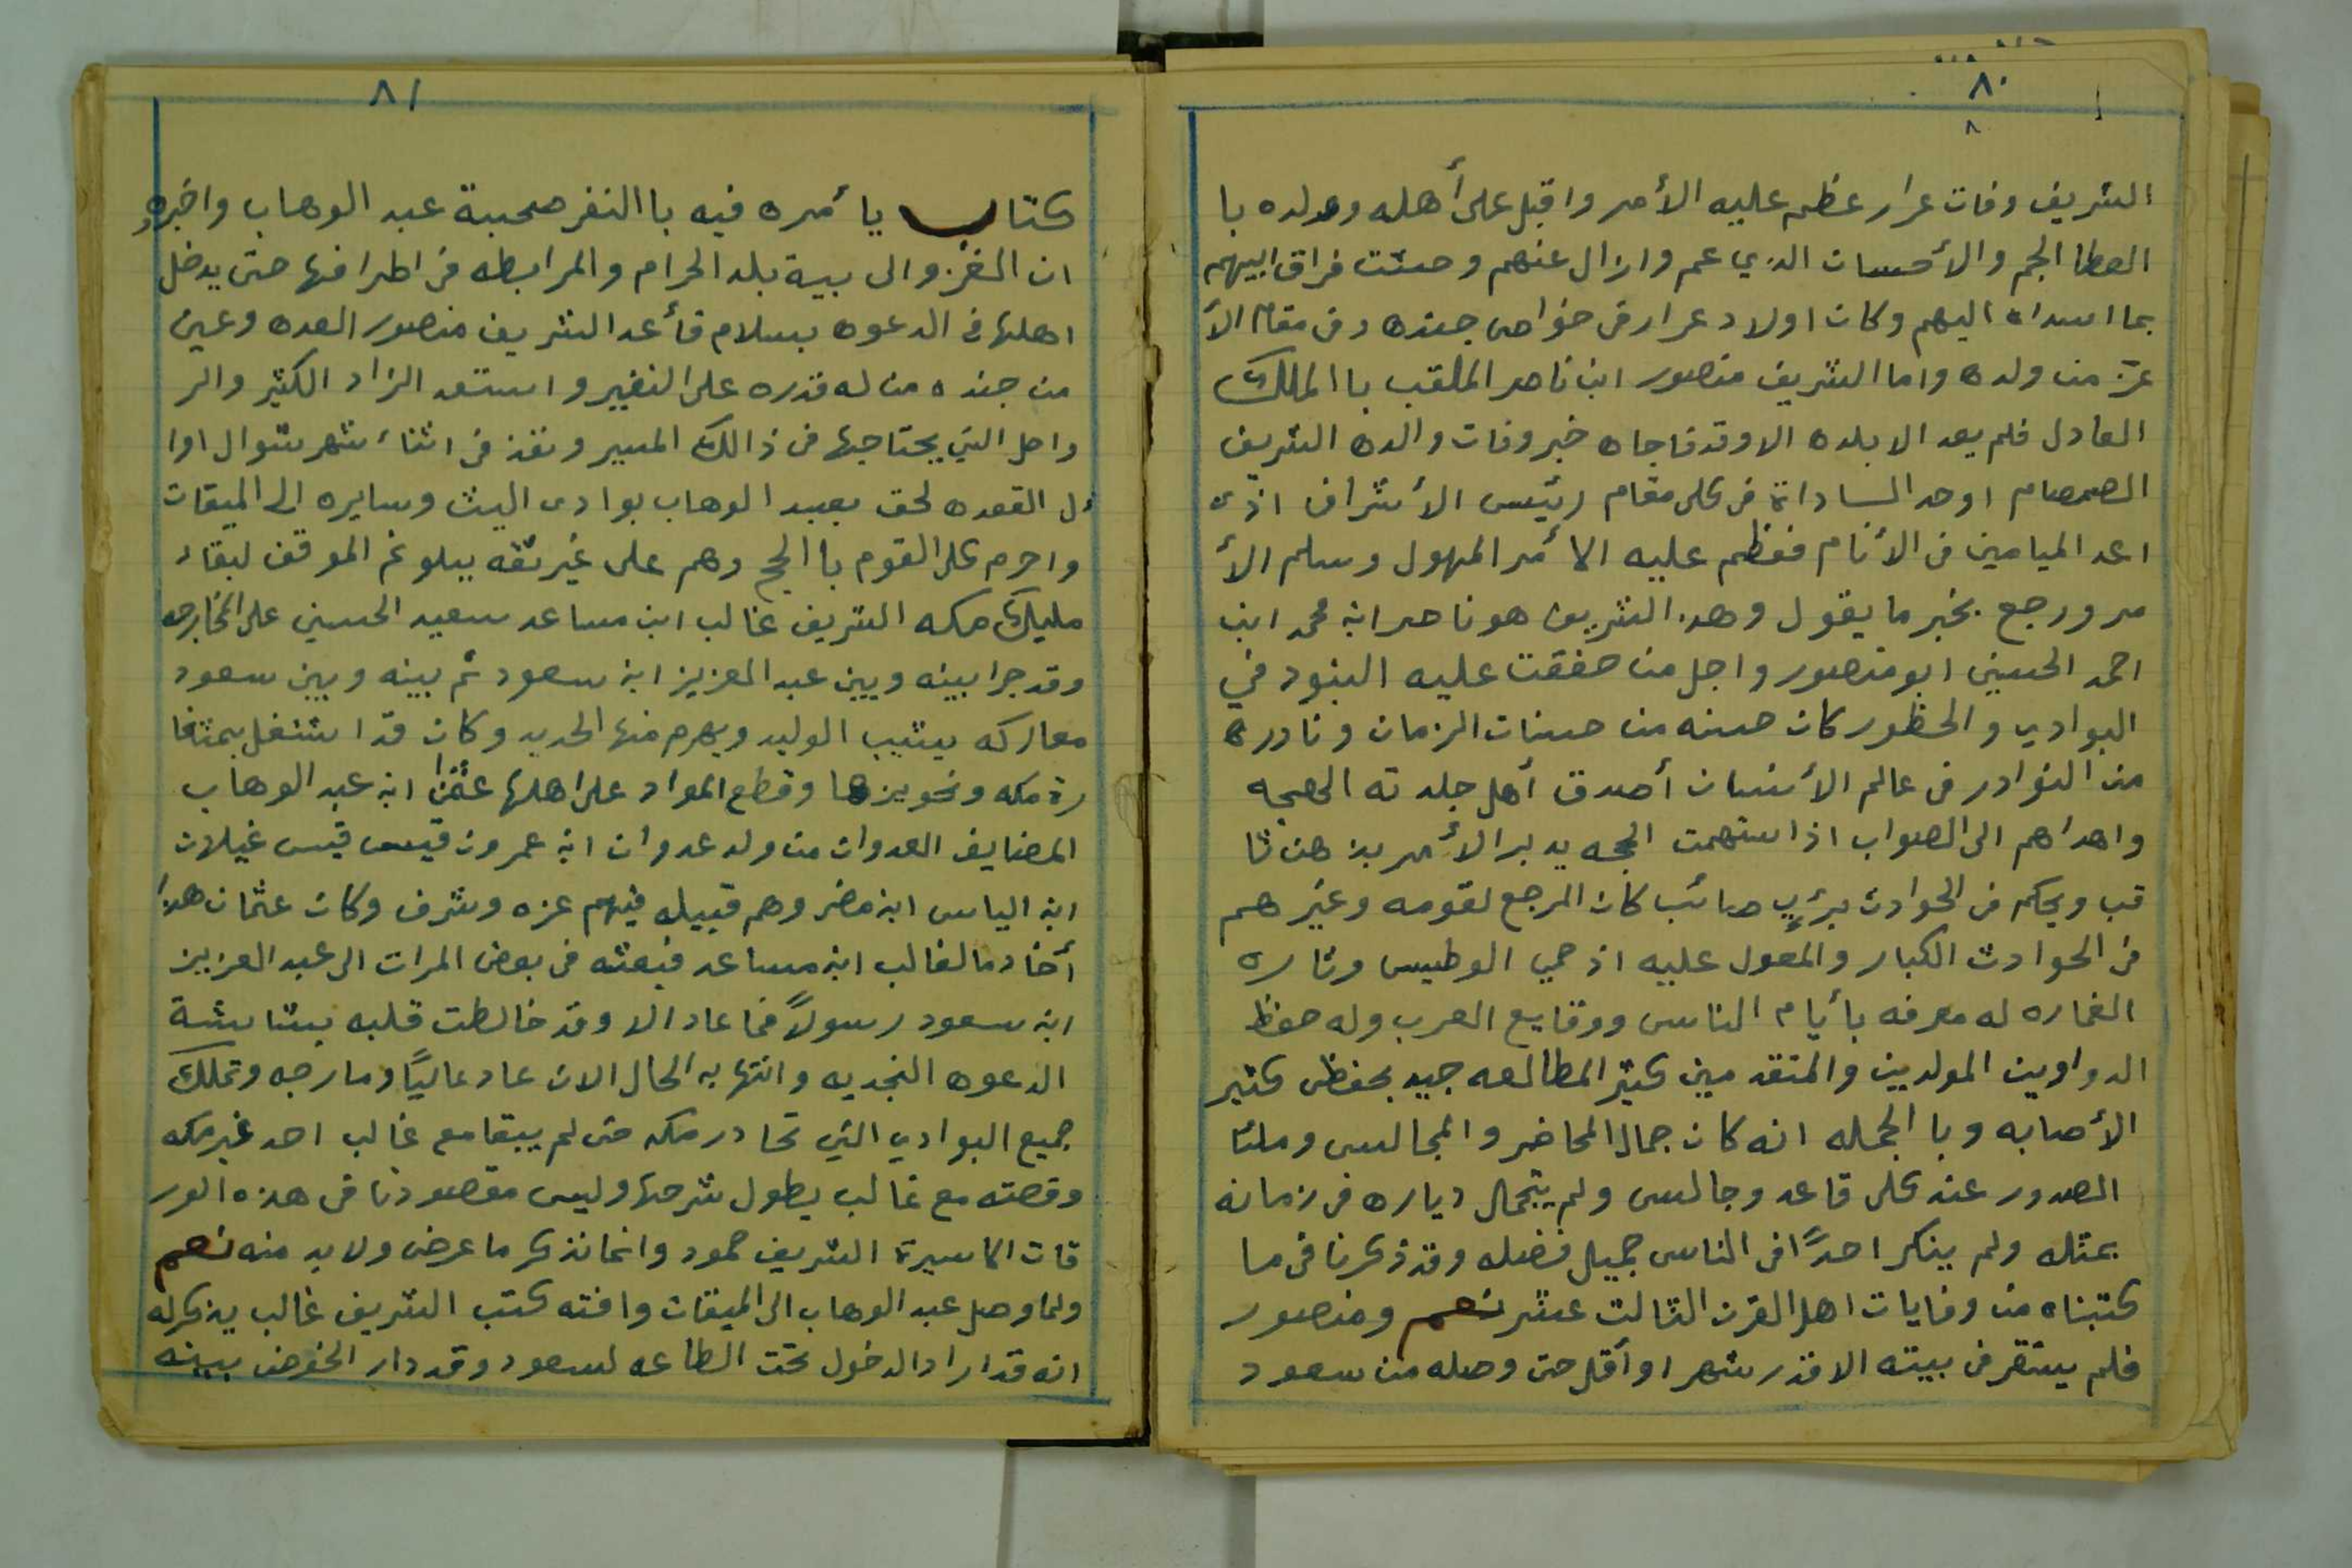 ٨٠
الشريف وفات عرار عظم عليه الأمر واقبل على أهله وولده با
العطا الجم والأحسان الذي عم وازال عنهم وحشت فراق ابيهم
بما اسداه اليهم وكان اولاد عرار من خواص جنده وفي مقام الأ
عز من ولده واما الشريف منصور ابن ناصر الملقب با الملك
العادل فلم يعد الا بلده الا وقد فاجاه خبر وفات والده الشريف
الصمصام اوحد السادات في كل مقام رئيس الأشراف اذى
اعد الميامين في الأنام فعظم عليه الأمر المهول وسلم الأ
مر ورجع بخير ما يقول وهذا الشريف هو ناصر ابن محمد ابن
احمد الحسيني ابو منصور واجل من خفقت عليه البنود في
البوادي والحظور كان حسنه من حسنات الزمان ونادرة
من النوادر في عالم الأنسان أصدق أهل جلدته الهجه
واهداهم الى الصواب اذا ستهمت الحجه يدبر الأمر بذهن ثا
قب ويحكم في الحوادث برئي صائب كان المرجع لقومه وغيرهم
في الحوادث الكبار والمعول عليه اذ حمي الوطيس وثاره
الغماره له معرفه بأيام الناس ووقايع العرب وله حفظ
الدواوين المولدين والمتقدمين كثير المطالعه جيد بحفظ كثير
الأصابه وبا الجمله انه كان جمال المحاضر والمجالس وملئا
الصدور عند كل قاعد وجالس ولم يتجمل دياره في زمانه
بمثله ولم ينكر احداً في الناس جميل فضله وقد ذكرنا في ما
كتبناه من وفايات اهل القرن الثالث عشر نعم ومنصور
فلم يستقر في بيته الا قدر شهر او أقل حتى وصله من سعود
٨١
كتاب يأمره فيه با النفر صحبة عبد الوهاب واخبره
ان الغزو الى بية بلد الحرام والمرابطه في اطرافها حتى يدخل
اهلها في الدعوه بسلام فأعد الشريف منصور العده وعين
من جنده من له قدره على النفير واستعد الزاد الكثير والر
واحل التي يحتاجها في ذالك المسير ونفذ في اثناء شهر شوال اوا
ئل القعده لحق بعبد الوهاب بوادي اليث وسايره الى الميقات
واحرم كل القوم با الحج وهم على غير ثقه ببلوغ الموقف لبقاء
مليك مكه الشريف غالب ابن مساعد سعيد الحسيني على المخارجه
وقد جرا بينه وبين عبد العزيز ابن سعود ثم بينه وبين سعود
معاركه يشيب الوليد ويهرم منها الحديد وكان قد اشتغل بمثا
رة مكه وتحويزها وقطع المواد على اهلها عثمن ابن عبد الوهاب
المضايف العدوان من ولد عدوان ابن عمرون قيس قيس غيلان
ابن الياس ابن مضر وهم قبيله فيهم عزه وشرف وكان عثمان هذا
أخادما لغالب ابن مساعد فبعثه في بعض المرات الى عبد العزيز
ابن سعود رسولاً فما عاد الا وقد خالطت قلبه بشاشة
الدعوه النجديه وانتها به الحال الان عاد عالياً ومارجه وتملك
جميع البوادي التي تحادر مكه حتى لم يبقا مع غالب احد غير مكه
وقصته مع غالب يطول شرحها وليس مقصودنا في هذه الور
قات الا سيرة الشريف حمود وانما نذكر ما عرض ولا بد منه نعم
ولما وصل عبد الوهاب الى الميقات وافته كتب الشريف غالب يذكر له
انه قد اراد الدخول تحت الطاعه لسعود وقد دار الخوض بينه